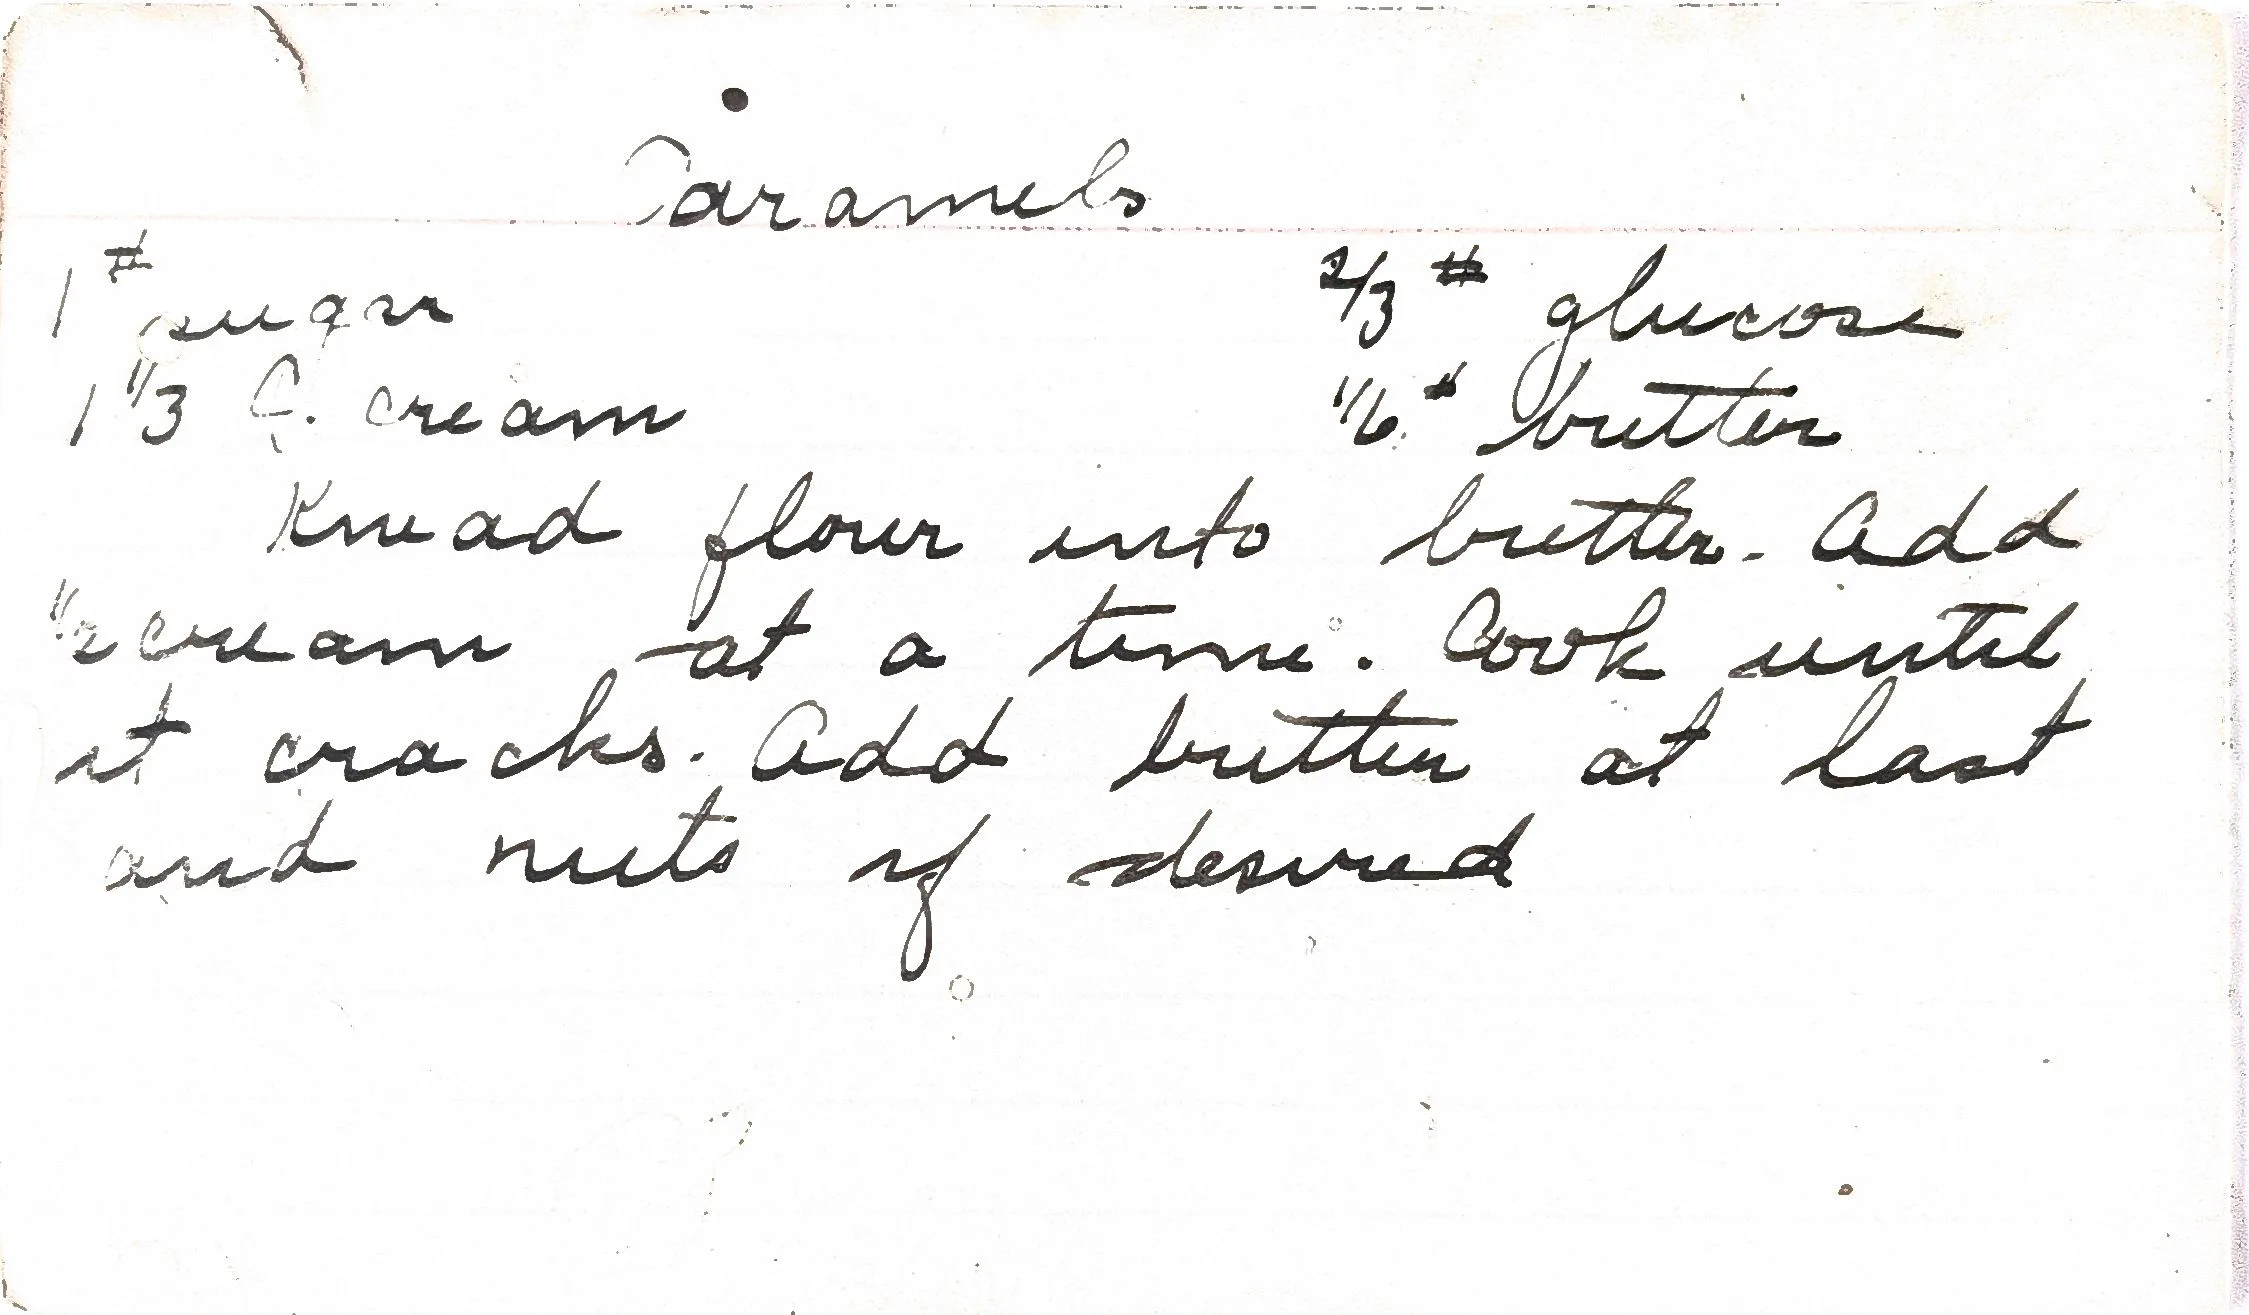 Caramels
1# sugar 2/3 # glucose
1 1/3 C. cream 1/6 # butter
Knead flour into butter. Add
1/2 cream at a time. Cook until
it cracks. Add butter at last
and nuts if desired